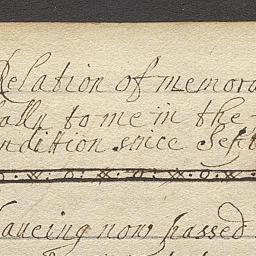 Relation of memora
ally to me in the
ndittion since Sept
haueing now passed